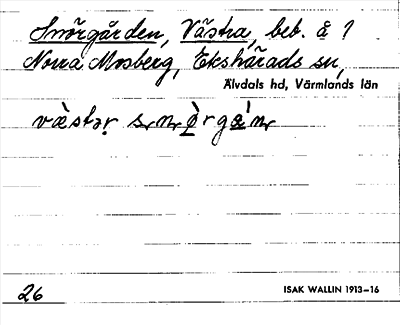 Snörgården, Västra, beb. å ?
Norra Mosberg, Ekshärads sn,
Älvdals hd, Värmlands län
26
ISAK WALLIN 1913–16